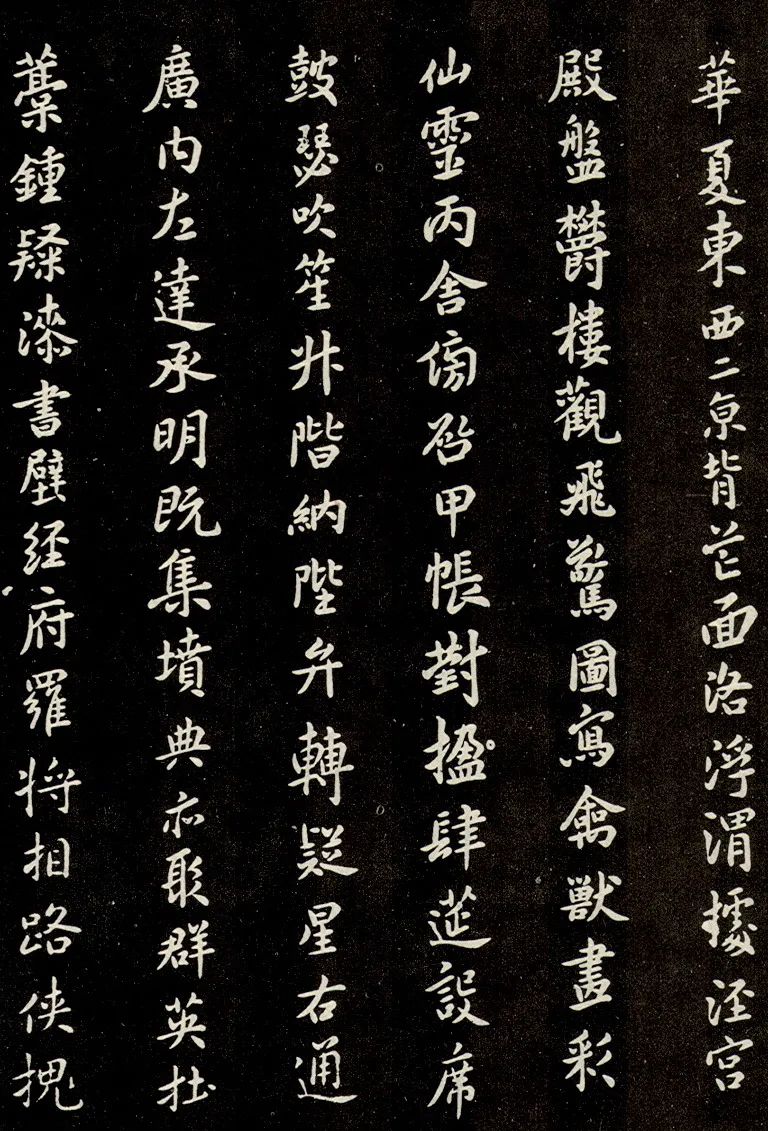 華夏東西二亰背芒面洛浮渭據涇宮
殿盤欝樓觀飛驚圖寫禽獸畫彩
仙靈丙舍傍啓甲帳對楹肆筵設席
鼓瑟吹笙升階納陛弁轉疑星右通
廣內左達承明既集墳典亦聚群英杜
藁鍾隸漆書壁經府羅將相路俠槐